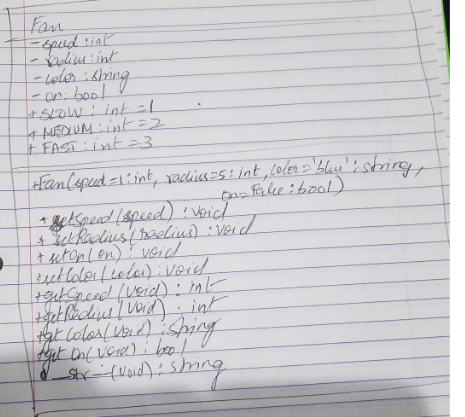 Fan
- speed : int
- radius : int
- color : string
- on : bool
+ SLOW : int = 1
+ MEDIUM : int = 2
+ FAST : int = 3
+Fan(speed=1:int, radius=5:int, color='blue':string,
on=False:bool)
+ setSpeed(speed) : void
+ setRadius(radius) : void
+ setOn(on) : void
+setColor(color) : void
+getSpeed(void) : int
+getRadius(void) : int
+getColor(void) : string
+getOn(void) : bool
__str__(void) : string